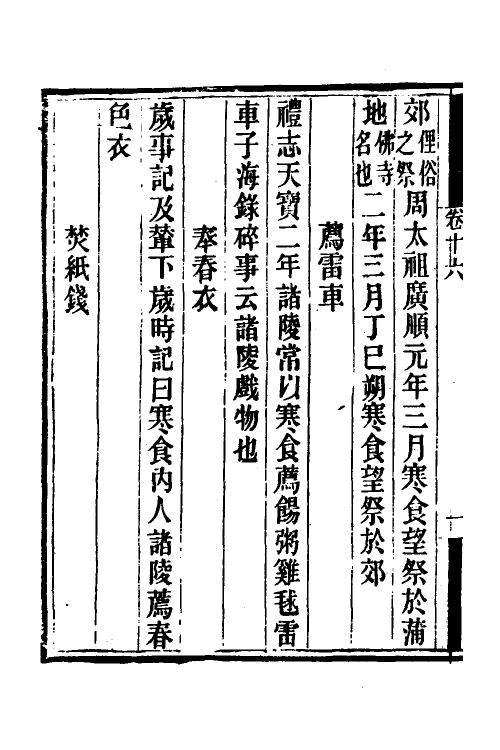 卷十六
郊俚俗之祭周太祖廣順元年三月寒食望祭於蒲
地佛寺名也二年三月丁巳朔寒食望祭於郊
薦雷車
禮志天寶二年諸陵常以寒食薦餳粥雞毬雷
車子海錄碎事云諸陵戲物也
奉春衣
歲事記及輦下歲時記曰寒食內人諸陵薦春
色衣
焚紙錢